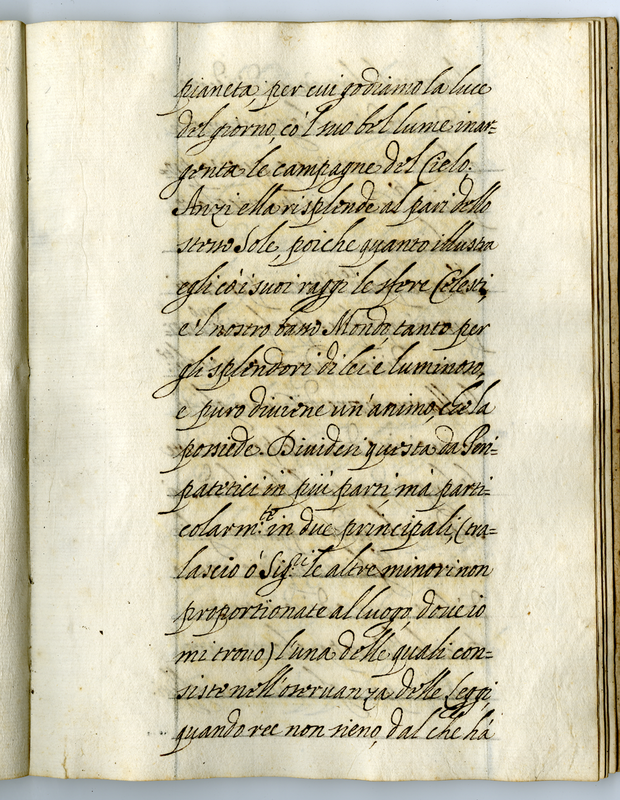 pianeta, per cui godiamo la luce
del giorno, cò 'l suo bel lume inar=
genta le campagne del Cielo.
Anzi ella risplende al pari dello
stesso Sole, poiche quanto illustra
egli cò i suoi raggi le sfere Celesti,
e 'l nostro basso Mondo, tanto per
gli splendori di lei è luminoso,
e puro diviene un'animo, che la
possiede. Dividesi questa da Peri=
patetici in più parti, mà parti=
colarm.te in due principali, (tra=
lascio ò Sig.ri le altre minori non
proportionate al luogo, dove io
mi trovo) l'una delle quali con=
siste nell'osservanza delle Leggi,
quando ree non sieno, dal che hà